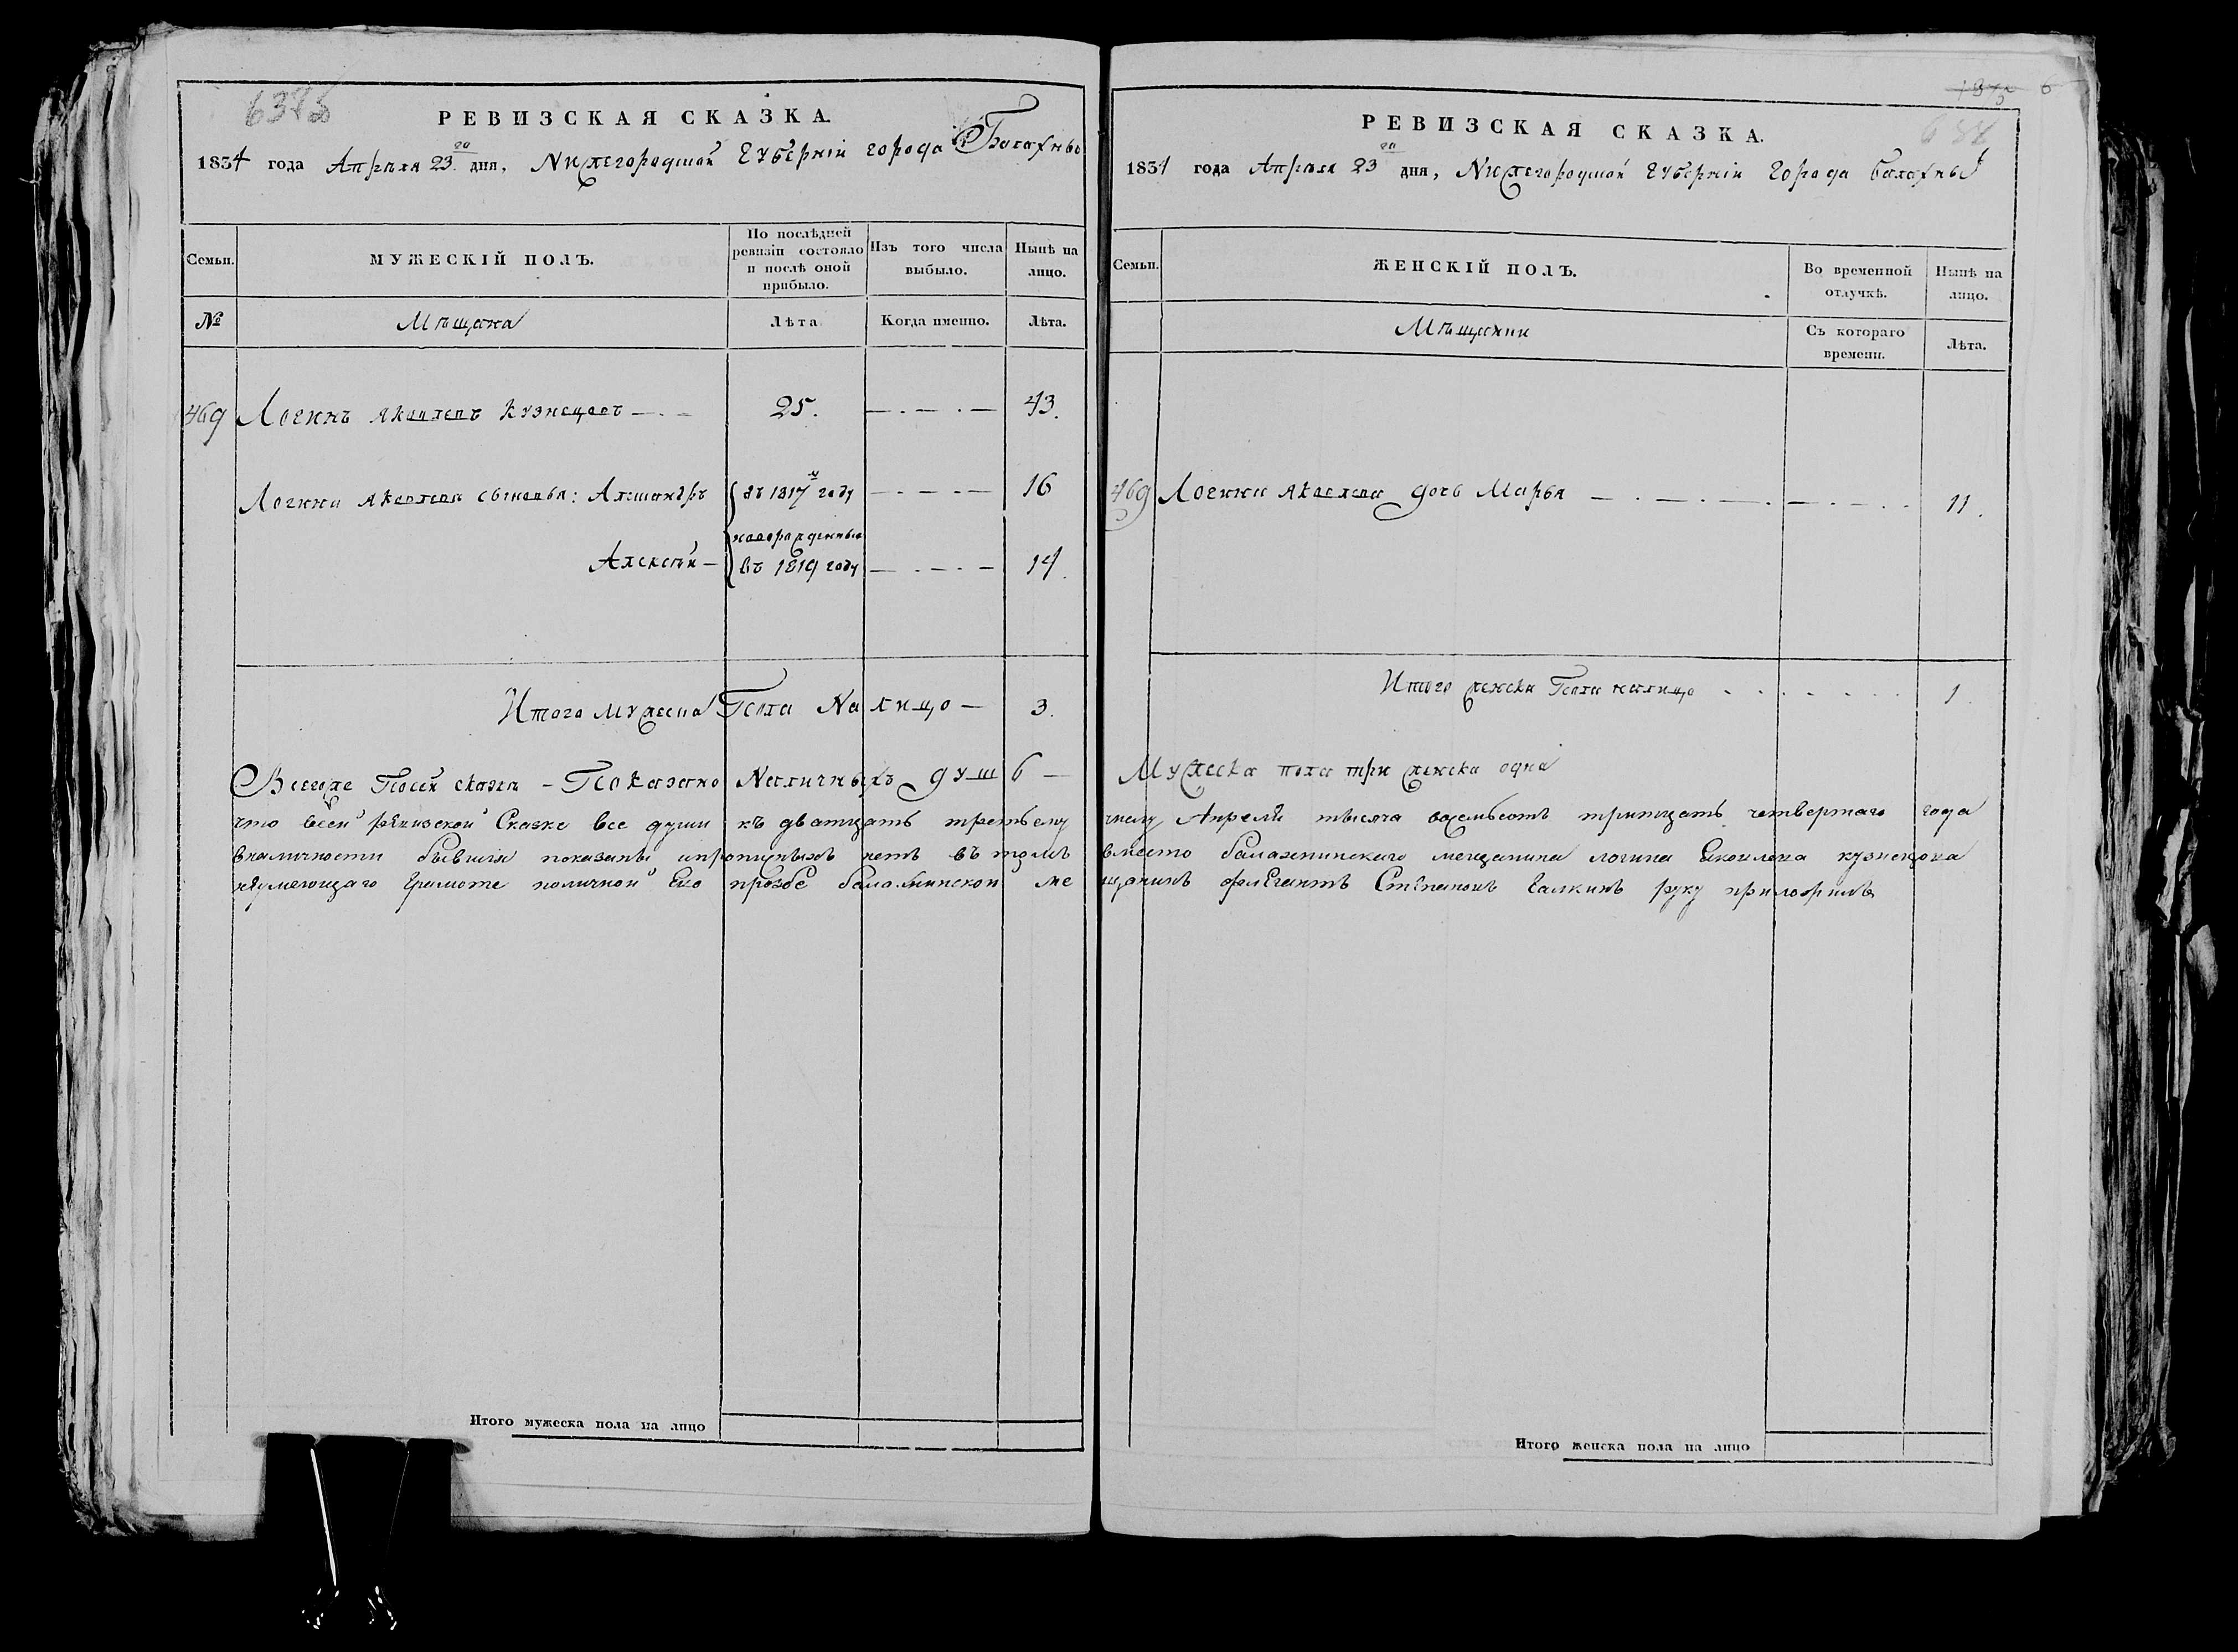 РЕВИЗСКАЯ СКАЗКА.
1834 года Апрѣля 23го дня, Нижегородской Губерніи города Балахны
Семьи.
МУЖЕСКІЙ ПОЛЪ.
По послѣдней ревизіи состояло и послѣ оной прибыло.
Изъ того числа выбыло.
Нынѣ на лицо.
№
Мѣщана
Лѣта
Когда именно.
Лѣта.
469 Логинъ Яковлевъ Кузнецовъ 25. 43.
Логина Яковлева сыновья: Александръ въ 1817м году 16
новорожденные
Алексѣй — въ 1819 году 14.
Итого Мужеска Пола На лицо — 3.
Всегоже Посей сказки — Показано Наличныхъ душ
что всей ревизской Сказке все души къ дватцать третьему
вналичности бывшия показаны ипропущеныхъ нетъ въ томъ
неумеющаго Грамоте поличной Ево прозбе балахнинской ме
Итого мужеска пола на лицо
РЕВИЗСКАЯ СКАЗКА.
1834 года Апрѣля 23го дня, Нижегородской Губерніи Города Балахны
Семьи.
ЖЕНСКІЙ ПОЛЪ.
Во временной отлучкѣ.
Нынѣ на лицо.
Мѣщанки
Съ котораго времени.
Лѣта.
469 Логина Яковлева дочь Марья 11.
Итого женска Пола налицо 1.
Мужеска пола три женска одна
числу Апреля тысяча восемьсотъ тритцать четвертаго года
вместо балахнинскаго мещанина логина Яковлева кузнецова
щанинъ Степановъ Галкинъ руку приложилъ
Итого женска пола на лицо